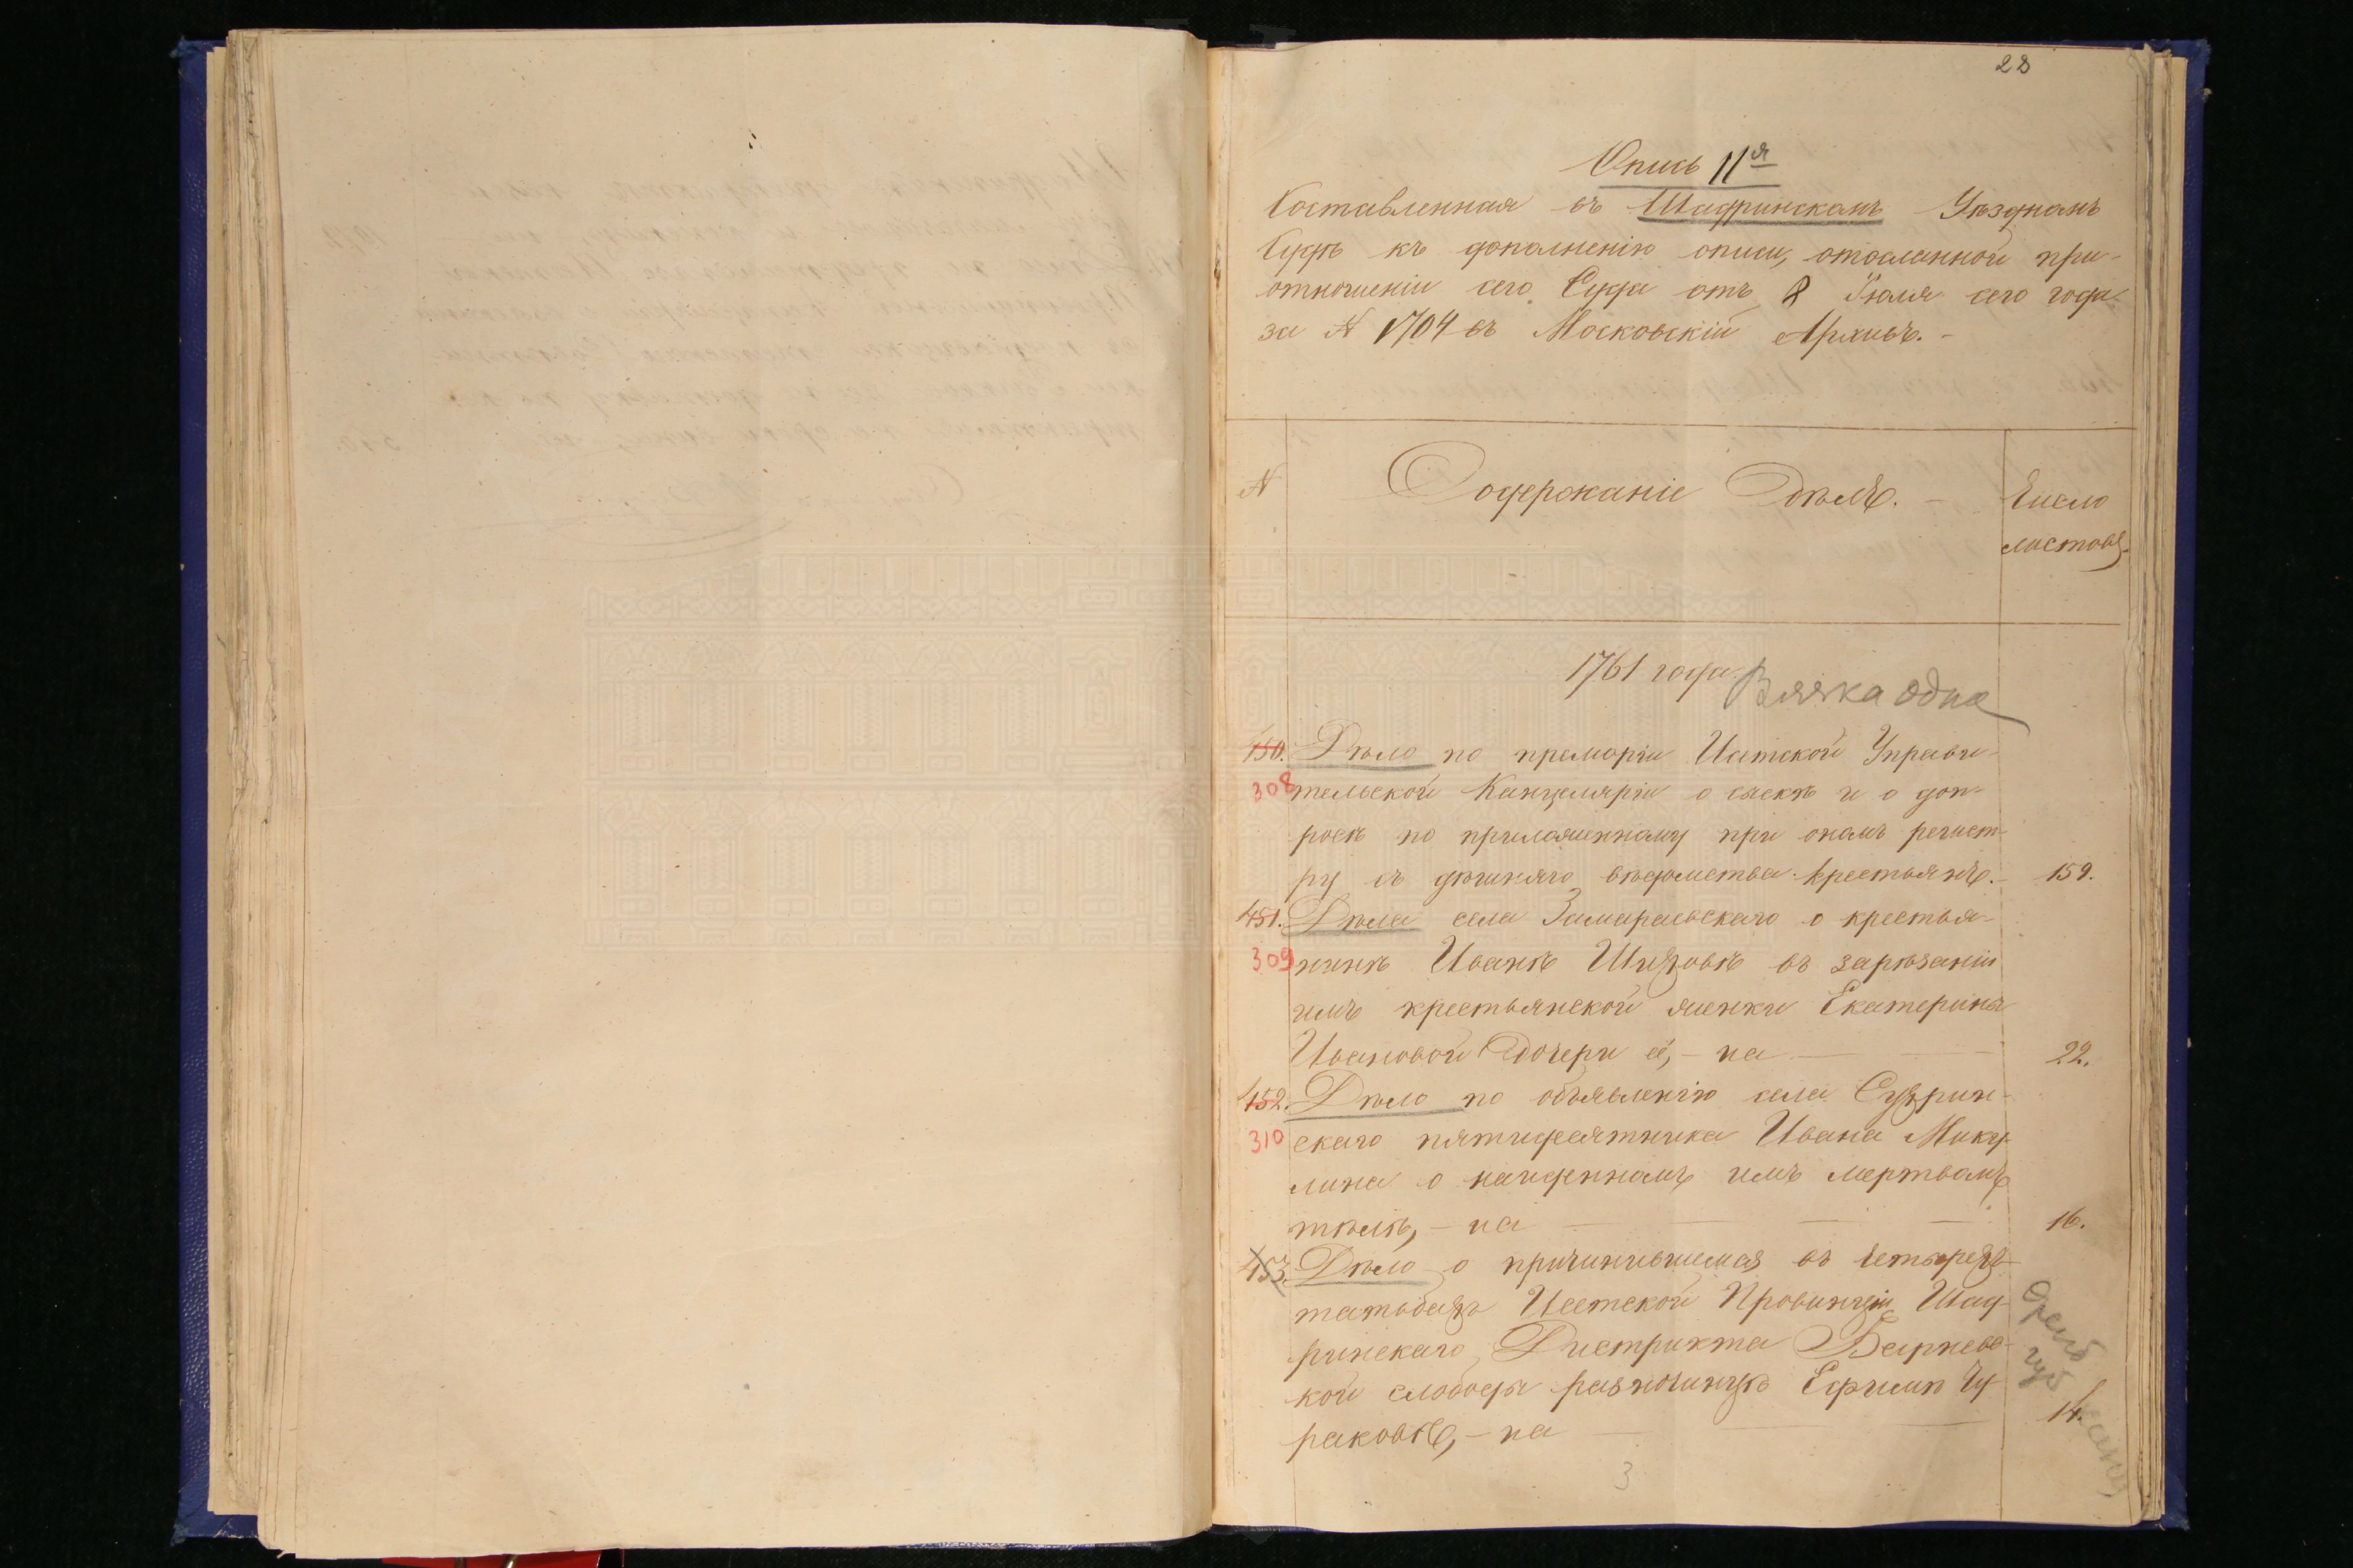 28
Опись 11я
Составленная въ Шадринскомъ Уѣздномъ
Судѣ къ дополненію описи, отосланной при
отношеніи сего Суда отъ 8 Іюля сего года
за № 1704 въ Московскій Архивъ. –
№
Содержаніе Дѣлъ. –
Число
листовъ.
1761 года.
Вязка одна
450. Дѣло по промеморіи Исетской Управи-
308 тельской Канцеляріи о сыскѣ и о доп-
росѣ по приложенному при ономъ регист-
ру съ здѣшняго вѣдомства крестьянъ. – 159.
451. Дѣла села Замараевскаго о крестья-
309 нинѣ Иванѣ въ зарѣзаніи
имъ крестьянской женки Екатерины
Ивановой дочери ея, – на 22.
452. Дѣло по объявленію села
310 скаго пятидесятника Ивана Мику-
лина о найденномъ имъ мертвомъ
тѣлѣ, – на 16.
453. Дѣло о въ
Исетской Провинціи Шад-
ринскаго Дистрикта
кой слободы разночинцѣ Ефимѣ Чу-
раковѣ, – на 14.
3